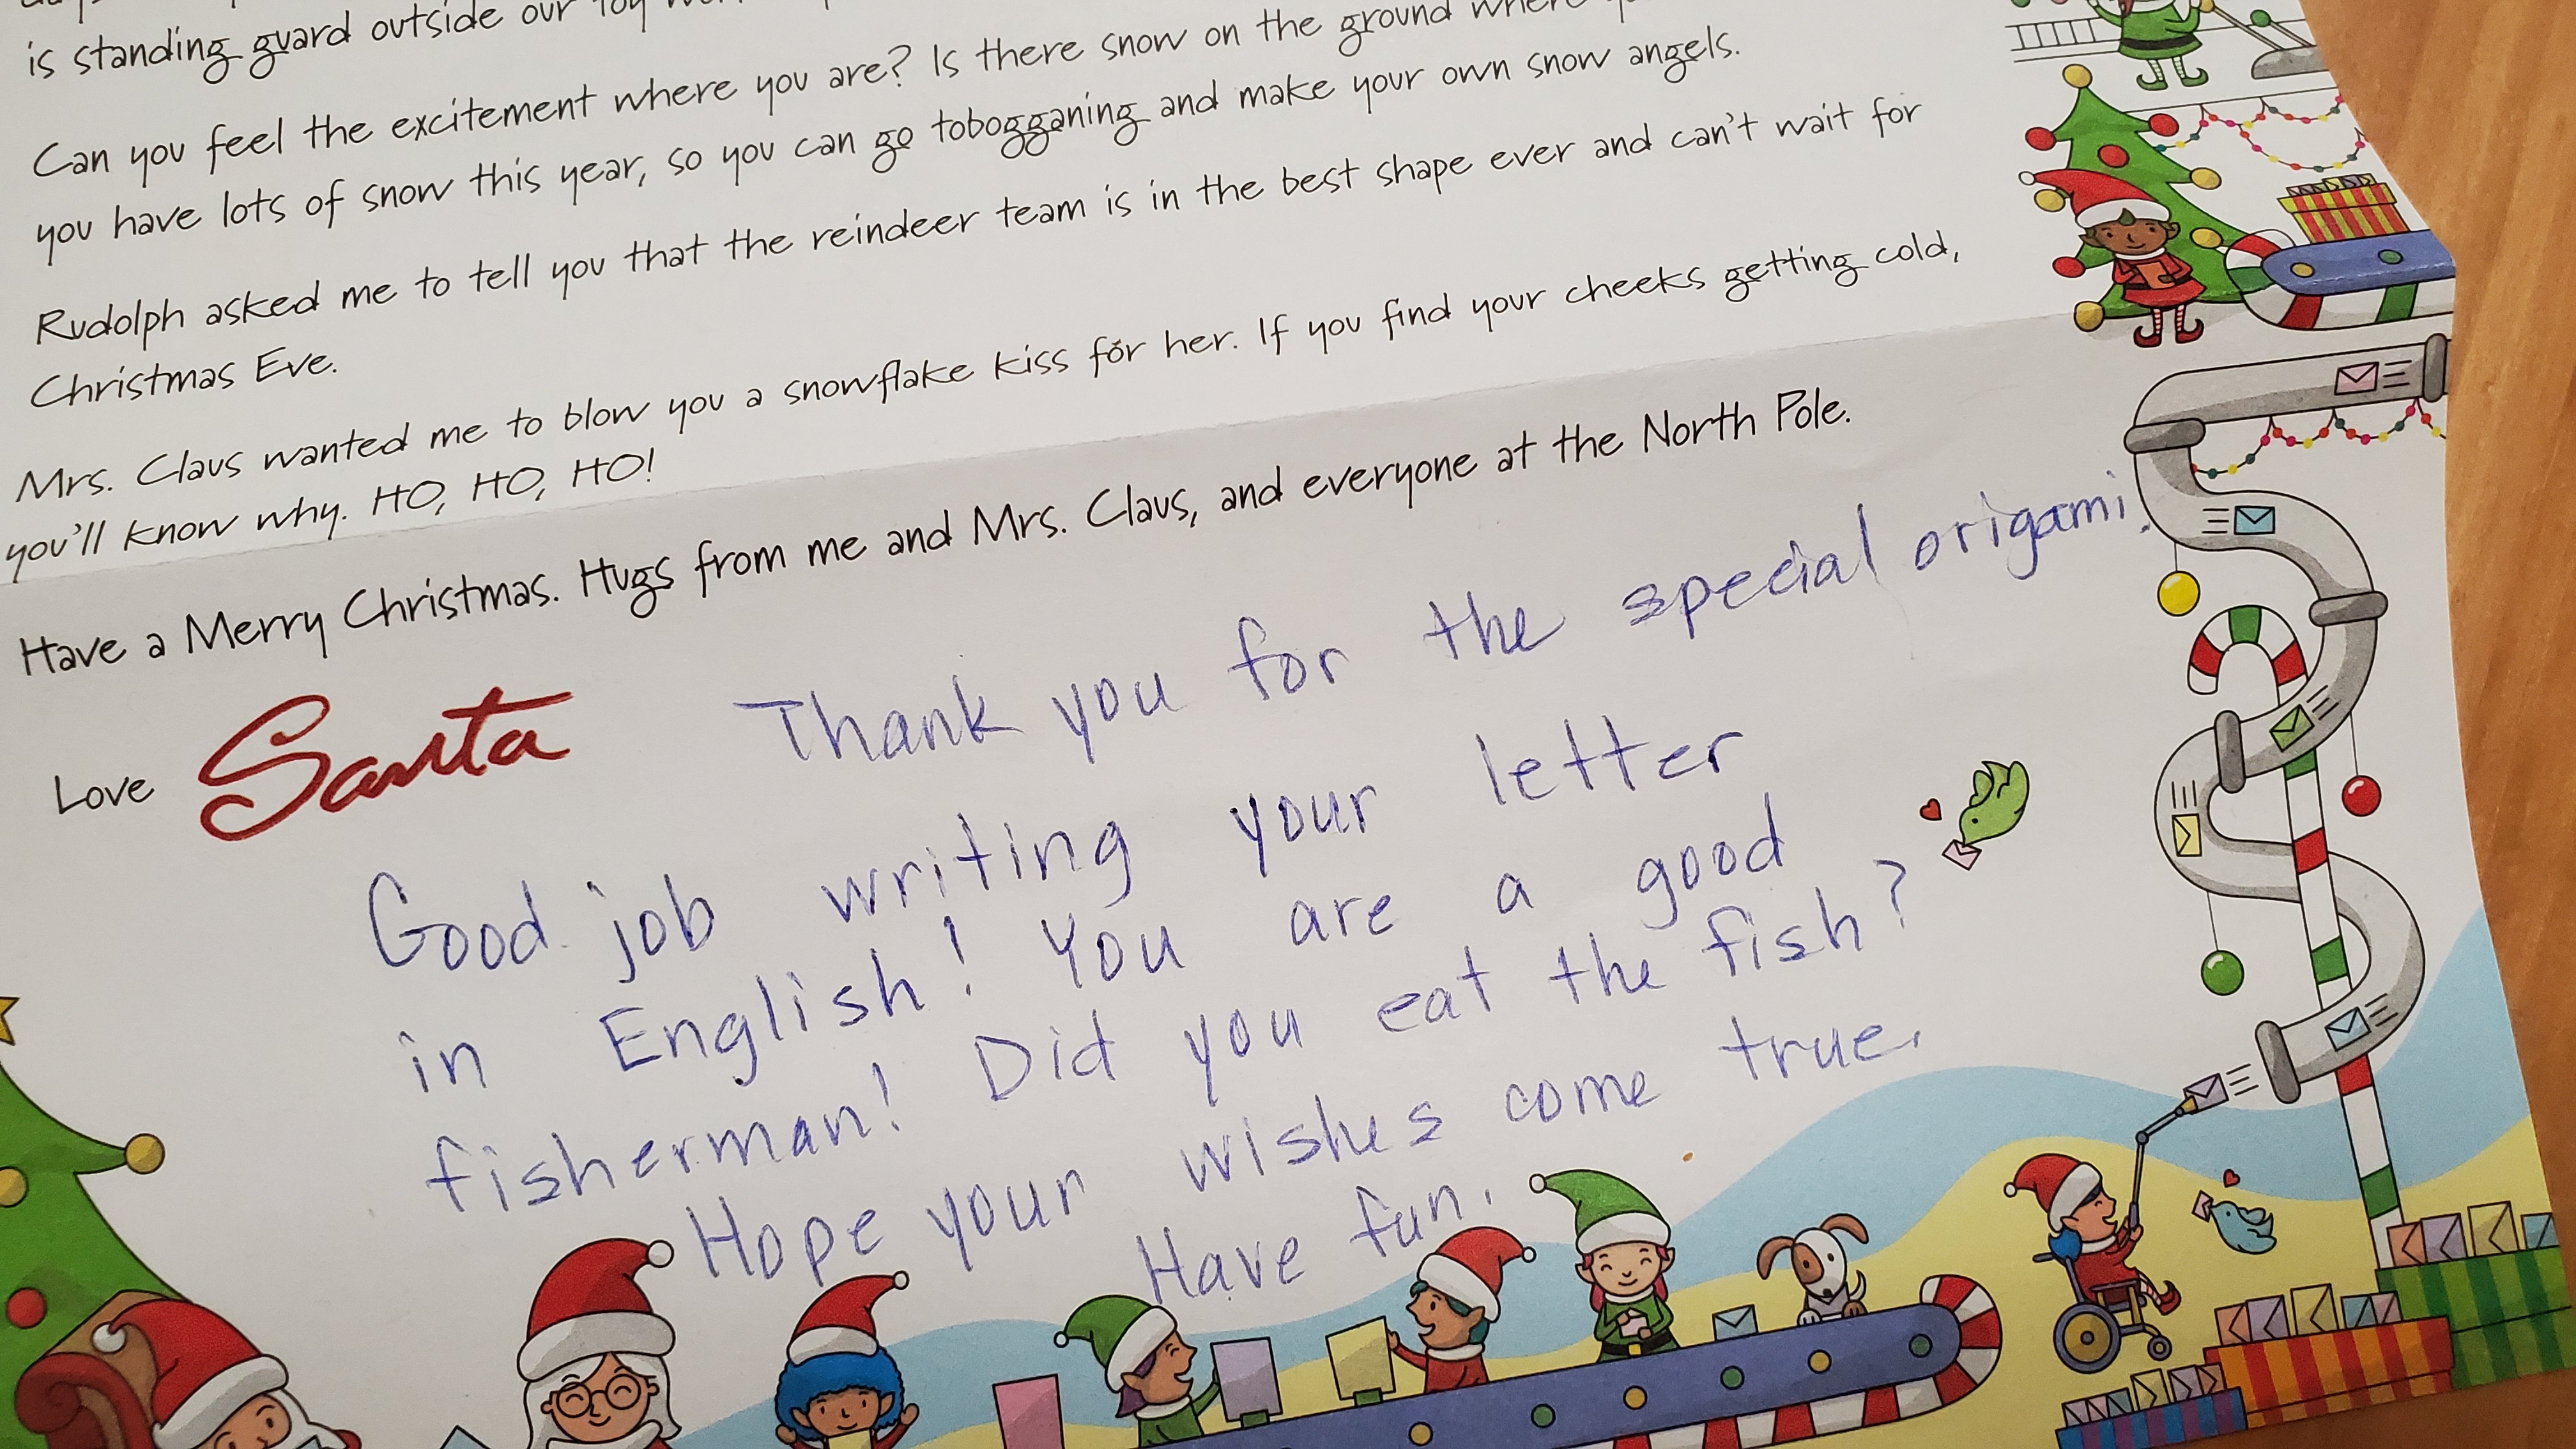 is standing guard outside our toy
Can you feel the excitement where you are? Is there snow on the ground where
you have lots of snow this year, so you can go tobogganing and make your own snow angels.
Rudolph asked me to tell you that the reindeer team is in the best shape ever and can't wait for
Christmas Eve.
Mrs. Claus wanted me to blow you a snowflake kiss for her. If you find your cheeks getting cold,
you'll know why. HO, HO, HO!
Have a Merry Christmas. Hugs from me and Mrs. Claus, and everyone at the North Pole.
Love Santa
Thank you for the special origami.
Good job writing your letter
in English! You are a good
fisherman! Did you eat the fish?
Hope your wishes come true.
Have fun.